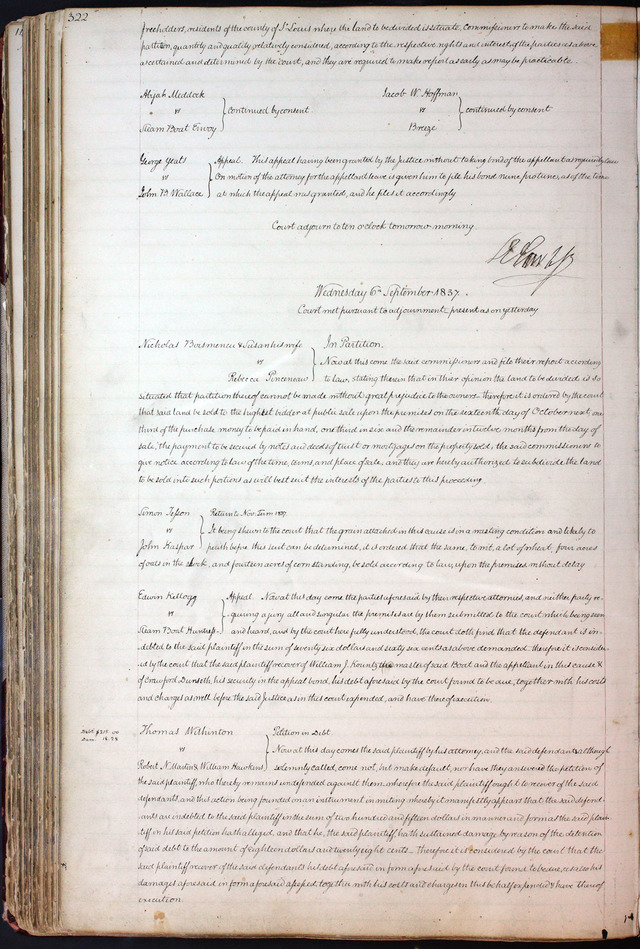 322
freeholders, residents of the county of St Louis where the land to be divided is situate, commissioners to make the said
partition, quantity and quality relatively considered, according to the respective rights and interest of the parties as above
ascertained and determined by the court, and they are required to make report as early as may be practicable.
Abijah Meddock
vs } continued by consent
Steam Boat Envoy
Jacob W. Hoffman
vs } continued by consent
Breeze
George Yeats } Appeal. This appeal having been granted by the justice without taking bond of the appellant as required by law
vs On motion of the attorney for the appellant leave is given him to file his bond nunc pro tunc, as of the time
John B. Wallace at which the appeal was granted, and he files it accordingly
Court adjourn to ten o'clock tomorrow morning.
Wednesday 6th September 1837.
Court met pursuant to adjournment present as on yesterday
Nicholas Boismenu & Susan his wife } In Partition.
vs Now at this come the said commissioners and file their report according
Rebecca Pinceneau to law, stating therein that in their opinion the land to be divided is so
situated that partition thereof cannot be made without great prejudice to the owners Therefore it is ordered by the court
that said land be sold to the highest bidder at public sale upon the premises on the sixteenth day of October next, one
third of the purchase money to be paid in hand, one third in six and the remainder in twelve months from the day of
sale, the payment to be secured by notes and deeds of trust or mortgages on the property sold, the said commissioners to
give notice according to law of the time, terms, and place of sale, and they are hereby authorized to subdivide the land
to be sold into such portions as will best suit the interests of the parties to this proceeding.
Simon Tesson } Return to Nov. Term 1837
vs It being shown to the court that the grain attached in this cause is in a wasting condition and likely to
John Kaspar perish before this suit can be determined, it is ordered that the same, to wit, a lot of wheat four acres
of oats in the shock, and fourteen acres of corn standing, be sold according to law, upon the premises without delay
Edwin Kellogg } Appeal. Now at this day come the parties aforesaid by their respective attornies, and neither party re-
vs quiring a jury all and singular the premises are by them submitted to the court which being seen
Steam Boat Huntress and heard, and by the court here fully understood, the court doth find that the defendant is in-
debted to the said plaintiff in the sum of seventy six dollars and sixty six cents as above demanded. Therefore it is consider-
ed by the court that the said plaintiff recover of William J. Kountz the master of said Boat and the appellant in this cause &
of Crawford Dunseth, his security in the appeal bond, his debt aforesaid by the court found to be due, together with his costs
and charges as well before the said Justice as in this court expended, and have thereof execution.
Debt $215.00
Dam. 18.28
Thomas Withinton } Petition in Debt.
vs Now at this day comes the said plaintiff by his attorney, and the said defendants although
Robert N. Martin & William Hawkins solemnly called, come not, but make default, nor have they answered the petition of
the said plaintiff, who thereby remains undefended against them, wherefore the said plaintiff ought to recover of the said
defendants, and this action being founded on an instrument in writing whereby it manifestly appears that the said defend-
ants are indebted to the said plaintiff in the sum of two hundred and fifteen dollars in manner and form as the said plain-
tiff in his said petition hath alleged, and that he, the said plaintiff, hath sustained damage by reason of the detention
of said debt to the amount of eighteen dollars and twenty eight cents Therefore it is considered by the court that the
said plaintiff recover of the said defendants his debt aforesaid in form aforesaid by the court found to be due, as also his
damages aforesaid in form aforesaid assessed, together with his costs and charges in this behalf expended & have thereof
execution.